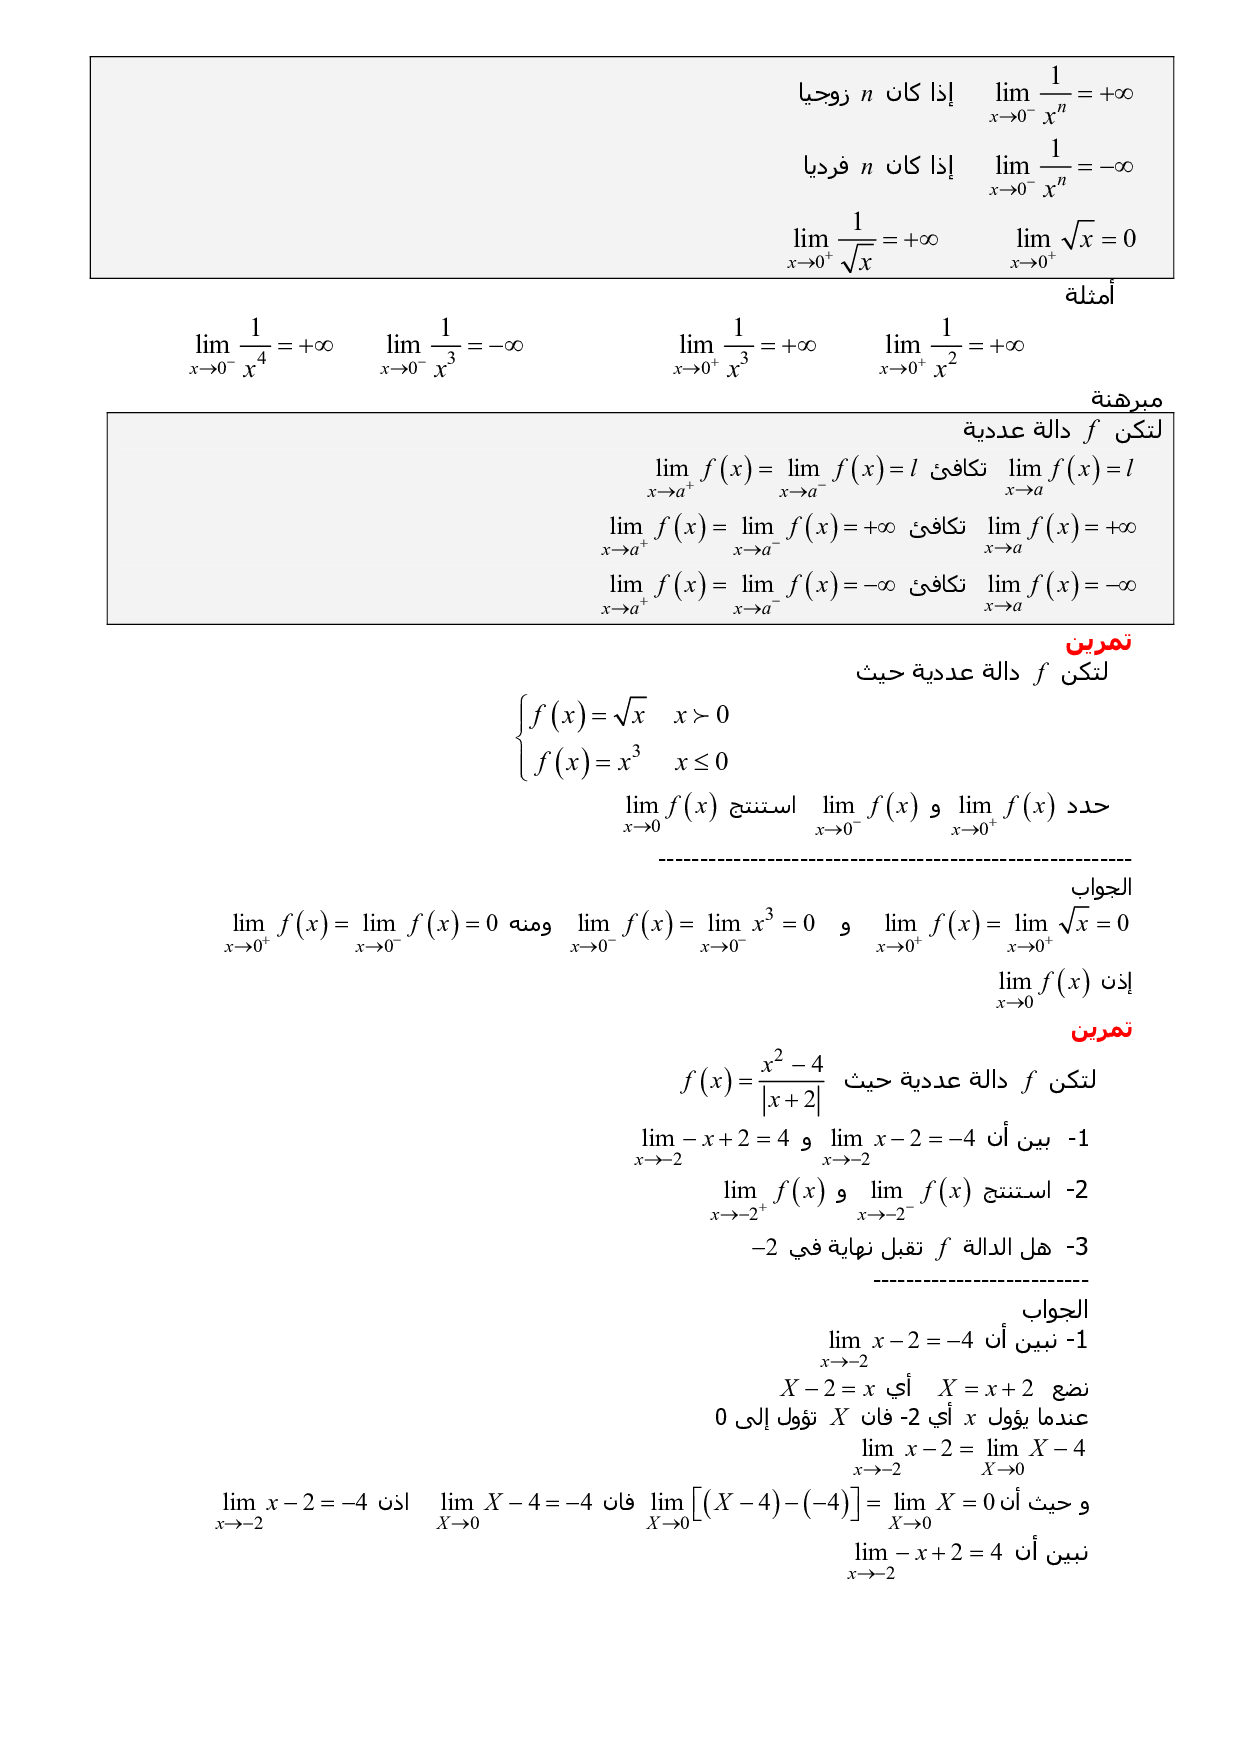 $\lim_{x \to 0^-} \frac{1}{x^n} = +\infty$ إذا كان $n$ زوجيا
$\lim_{x \to 0^-} \frac{1}{x^n} = -\infty$ إذا كان $n$ فرديا
$\lim_{x \to 0^+} \sqrt{x} = 0$ $\lim_{x \to 0^+} \frac{1}{\sqrt{x}} = +\infty$
أمثلة
$\lim_{x \to 0^+} \frac{1}{x^2} = +\infty$ $\lim_{x \to 0^+} \frac{1}{x^3} = +\infty$ $\lim_{x \to 0^-} \frac{1}{x^3} = -\infty$ $\lim_{x \to 0^-} \frac{1}{x^4} = +\infty$
مبرهنة
لتكن $f$ دالة عددية
$\lim_{x \to a} f(x) = l$ تكافئ $\lim_{x \to a^+} f(x) = \lim_{x \to a^-} f(x) = l$
$\lim_{x \to a} f(x) = +\infty$ تكافئ $\lim_{x \to a^+} f(x) = \lim_{x \to a^-} f(x) = +\infty$
$\lim_{x \to a} f(x) = -\infty$ تكافئ $\lim_{x \to a^+} f(x) = \lim_{x \to a^-} f(x) = -\infty$
تمرين
لتكن $f$ دالة عددية حيث
$\begin{cases} f(x) = \sqrt{x} & x \succ 0 \\ f(x) = x^3 & x \le 0 \end{cases}$
حدد $\lim_{x \to 0^+} f(x)$ و $\lim_{x \to 0^-} f(x)$ استنتج $\lim_{x \to 0} f(x)$
---------------------------------------------------------
الجواب
$\lim_{x \to 0^+} f(x) = \lim_{x \to 0^+} \sqrt{x} = 0$ و $\lim_{x \to 0^-} f(x) = \lim_{x \to 0^-} x^3 = 0$ ومنه $\lim_{x \to 0^+} f(x) = \lim_{x \to 0^-} f(x) = 0$
إذن $\lim_{x \to 0} f(x)$
تمرين
لتكن $f$ دالة عددية حيث $f(x) = \frac{x^2 - 4}{|x + 2|}$
1- بين أن $\lim_{x \to -2} x - 2 = -4$ و $\lim_{x \to -2} -x + 2 = 4$
2- استنتج $\lim_{x \to -2^-} f(x)$ و $\lim_{x \to -2^+} f(x)$
3- هل الدالة $f$ تقبل نهاية في $-2$
--------------------------
الجواب
1- نبين أن $\lim_{x \to -2} x - 2 = -4$
نضع $X = x + 2$ أي $X - 2 = x$
عندما يؤول $x$ أي 2- فان $X$ تؤول إلى 0
$\lim_{x \to -2} x - 2 = \lim_{X \to 0} X - 4$
و حيث أن $\lim_{X \to 0} [(X - 4) - (-4)] = \lim_{X \to 0} X = 0$ فان $\lim_{X \to 0} X - 4 = -4$ اذن $\lim_{x \to -2} x - 2 = -4$
نبين أن $\lim_{x \to -2} -x + 2 = 4$